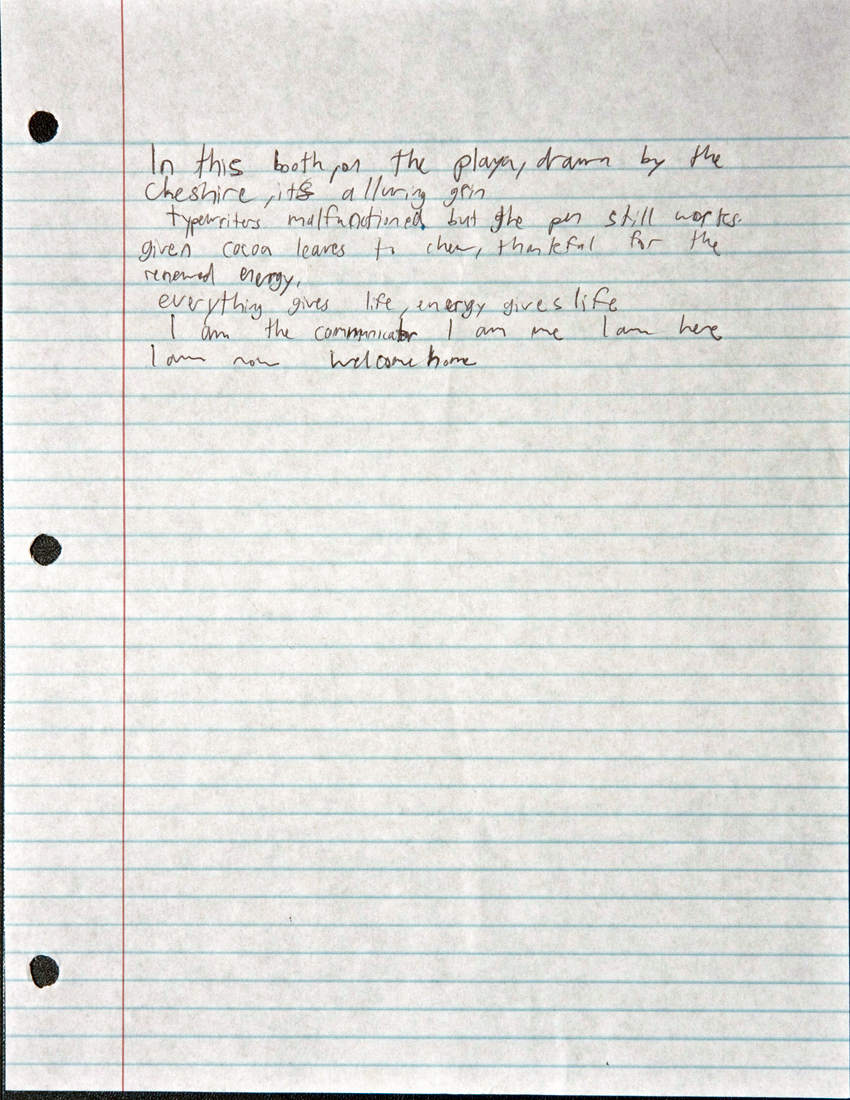 In this booth, on the playa, drawn by the
Cheshire, its alluring grin
typewriters malfunctioned but the pen still works.
given cocoa leaves to chew, thankful for the
renewed energy.
everything gives life, energy gives life
I am the communicator I am me I am here
I am now Welcome home